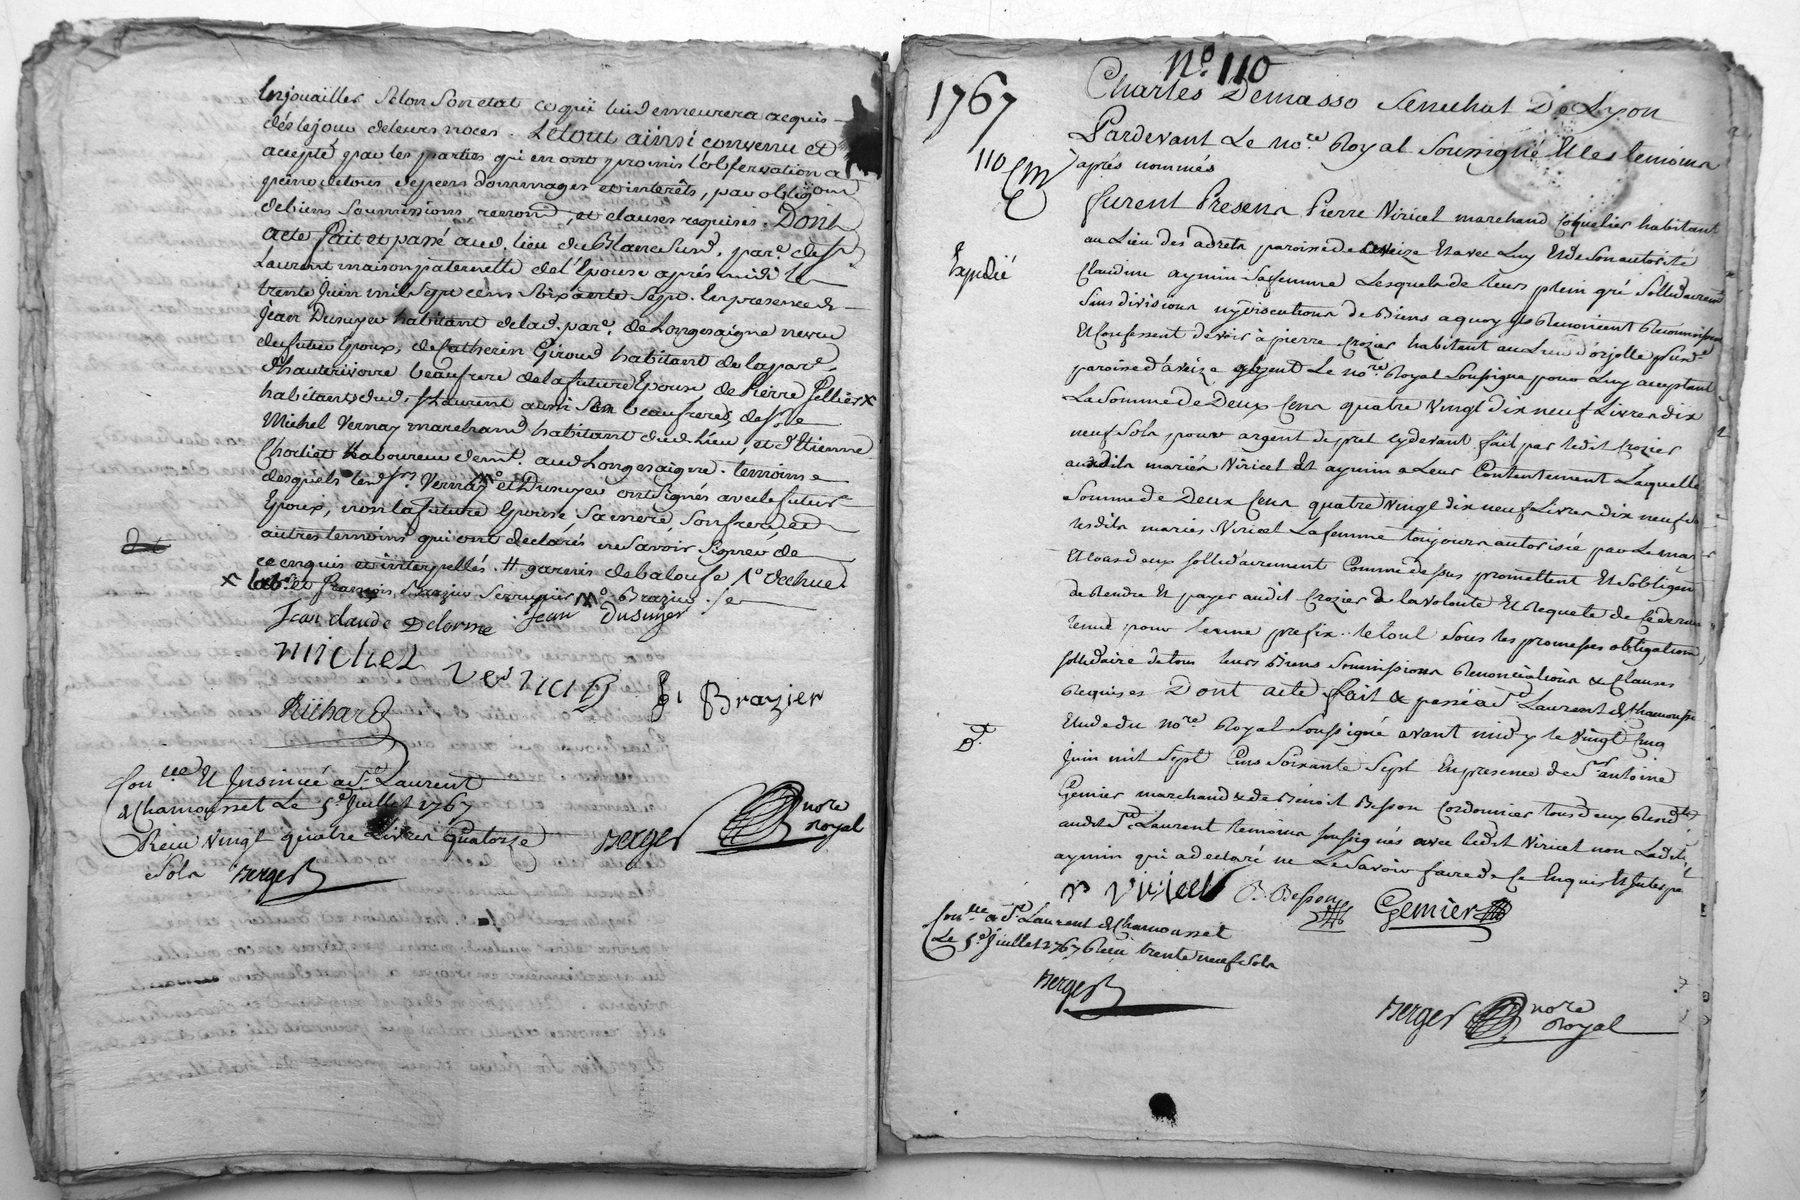 Enjouailler selon son etat ce qui lui demeurera acquis
dés le jour de leurs noces. Le tout ainsi convenu et
accepté par les parties qui en ont promis l'observation a
peine de tous depens dommages et interêts, par obligõn
de biens soumissions renonõ, et clauses requises. Dont
acte fait et passé aud. lieu du Blanc sur d. par.e de st
Laurent maison paternelle de l'Epouse aprés midi le
trente Juin mil sept cens soixante sept. En presence de
jean Dusuyer habitant de lad. par.e de Longesaigne neveu
du futur Epoux, de Catherin Giroud habitant de la par.e
d'hauterivoire beaufrere de la future Epouse, de Pierre Pellier x
habitant dud. st Laurent aussi son beaufrere, de sr
Michel Vernay marchand habitant dud. Lieu, et d'Etienne
Laboureur demt. aud. Longesaigne temoins
desquels led. sr. Vernay et Dusuyer ont signés avec le futur
Epoux, non la future Epouse sa mere, son frere, et
autres temoins qui ont declarés ne savoir signer de
ce enquis et interpellés. # garnis de balouse
x labr. et françois Brazier serrurier Brazier
Jean claude Delorme Jean Dusuyer
Michel Vernay f. Brazier
Richard
Con.lle Et Insinué a St. Laurent
de Chamousset Le 5e Juillet 1767
Recu vingt quatre Livres quatorze
sols Berger
Berger nore
Royal
No. 110
1767
Charles Demasso Senechal De Lyon
Pardevant Le no.re Royal soussigné Et les temoins
110
aprés nommés
furent Presens Pierre Viricel marchand coquelier habitant
au Lieu des adrets paroisse de aveize Et avec Luy Et de son autorité
Expedié
Claudine aymin sa femme Lesquels de leurs plein gré sollidairemt
sans division ny discution de Biens a quoy ils Renoncent Reconnoissent
Et Confessent devoir à pierre Crozier habitant au Lieu d'orjolle
paroisse d'aveize absent Le no.re Royal soussigné pour Luy acceptant
La Somme de Deux Cens quatre Vingt dix neuf Livres dix
neuf sols, pour argent de pret cy devant fait par ledit Crozier
auxdits mariés Viricel Et aymin a Leur Contentement Laquelle
somme de Deux Cens quatre Vingt dix neuf Livres dix neuf sols
lesdits mariés Viricel La femme toujours autorisée par Le mary
Et tous deux sollidairement Comme dessus promettent Et sobligent
de Rendre Et payer audit Crozier à la volonté Et Requete de Ce dernier
tenue pour terme prefix. le tout sous les promesses obligation
sollidaire de tous leurs Biens soumissions Renonciations & Clauses
Requises Dont acte fait & passé à St Laurent de Chamousset
Etude du no.re Royal soussigné avant midy le Vingt Cinq
juin mil sept Cens soixante sept En presence de Sr antoine
Gemier marchand & de Benoit Besson Cordonnier tous deux
audit St. Laurent temoins soussignés avec ledit Viricel non Ladite
aymin qui a declaré ne Le savoir faire de Ce Enquis Et Interpe
P Viricel B. Besson Gemier
Con.lle à St. Laurent de Chamousset
Le 5e Juillet 1767 Recu trente neuf sols
Berger
Berger nore
Royal